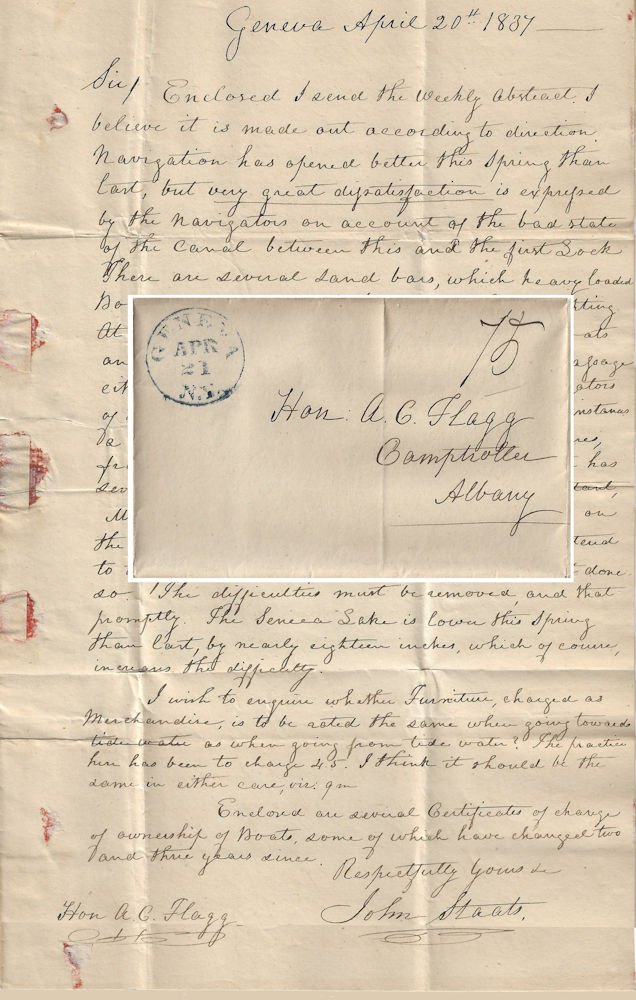 Geneva April 20th 1837
Sir/ Enclosed I send the Weekly Abstract. I
believe it is made out according to direction.
Navigation has opened better this Spring than
last, but very great dissatisfaction is expressed
by the Navigators on account of the bad state
of the Canal between this and the first Lock
There are several Sand bars, which heavy loaded
Bo
At
an
eit
of
a
fro
sev
M
the
to
GENEVA
APR
21
N.Y.
75
Hon: A. C. Flagg
Comptroller
Albany
ators
instances
has
on
tend
done
so. The difficulties must be removed, and that
promptly. The Seneca Lake is lower this Spring
than last, by nearly eighteen inches, which of course,
increases the difficulty.
I wish to enquire whether Furniture, charged as
Merchandise, is to be rated the same when going towards
tide water as when going from tide water? The practice
here has been to charge 4.5. I think it should be the
same in either case, viz: 9m
Enclosed are several Certificates of change
of ownership of Boats, some of which have changed two
and three years since.
Respectfully Yours &
John Staats.
Hon A. C. Flagg